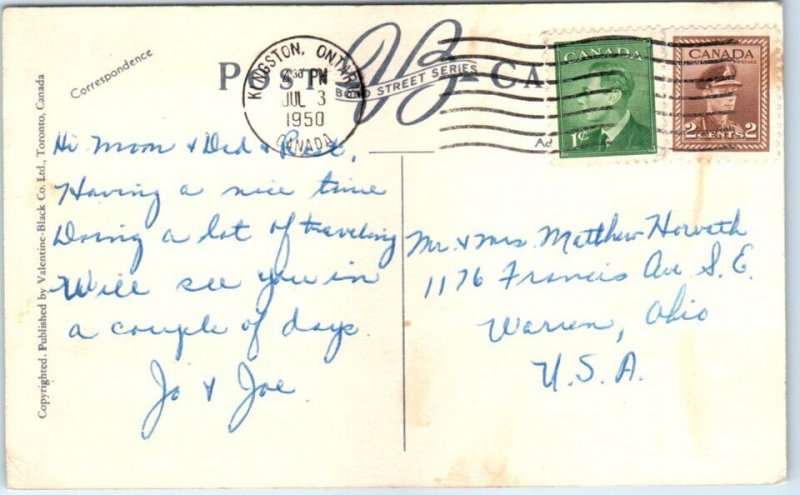 Correspondence
POST CA
VB
BOND STREET SERIES
KINGSTON, ONTARIO
PM
JUL 3
1950
CANADA
CANADA
1¢
CANADA
POSTES POSTAGE
2 CENTS 2
Ad
Hi Mom & Dad &
Having a nice time
Doing a lot of traveling
Will see you in
a couple of days.
Jo & Joe
Mr. & Mrs. Matthew Horvath
1176 Francis Ave S.E.
Warren, Ohio
U.S.A.
Copyrighted. Published by Valentine-Black Co. Ltd., Toronto, Canada